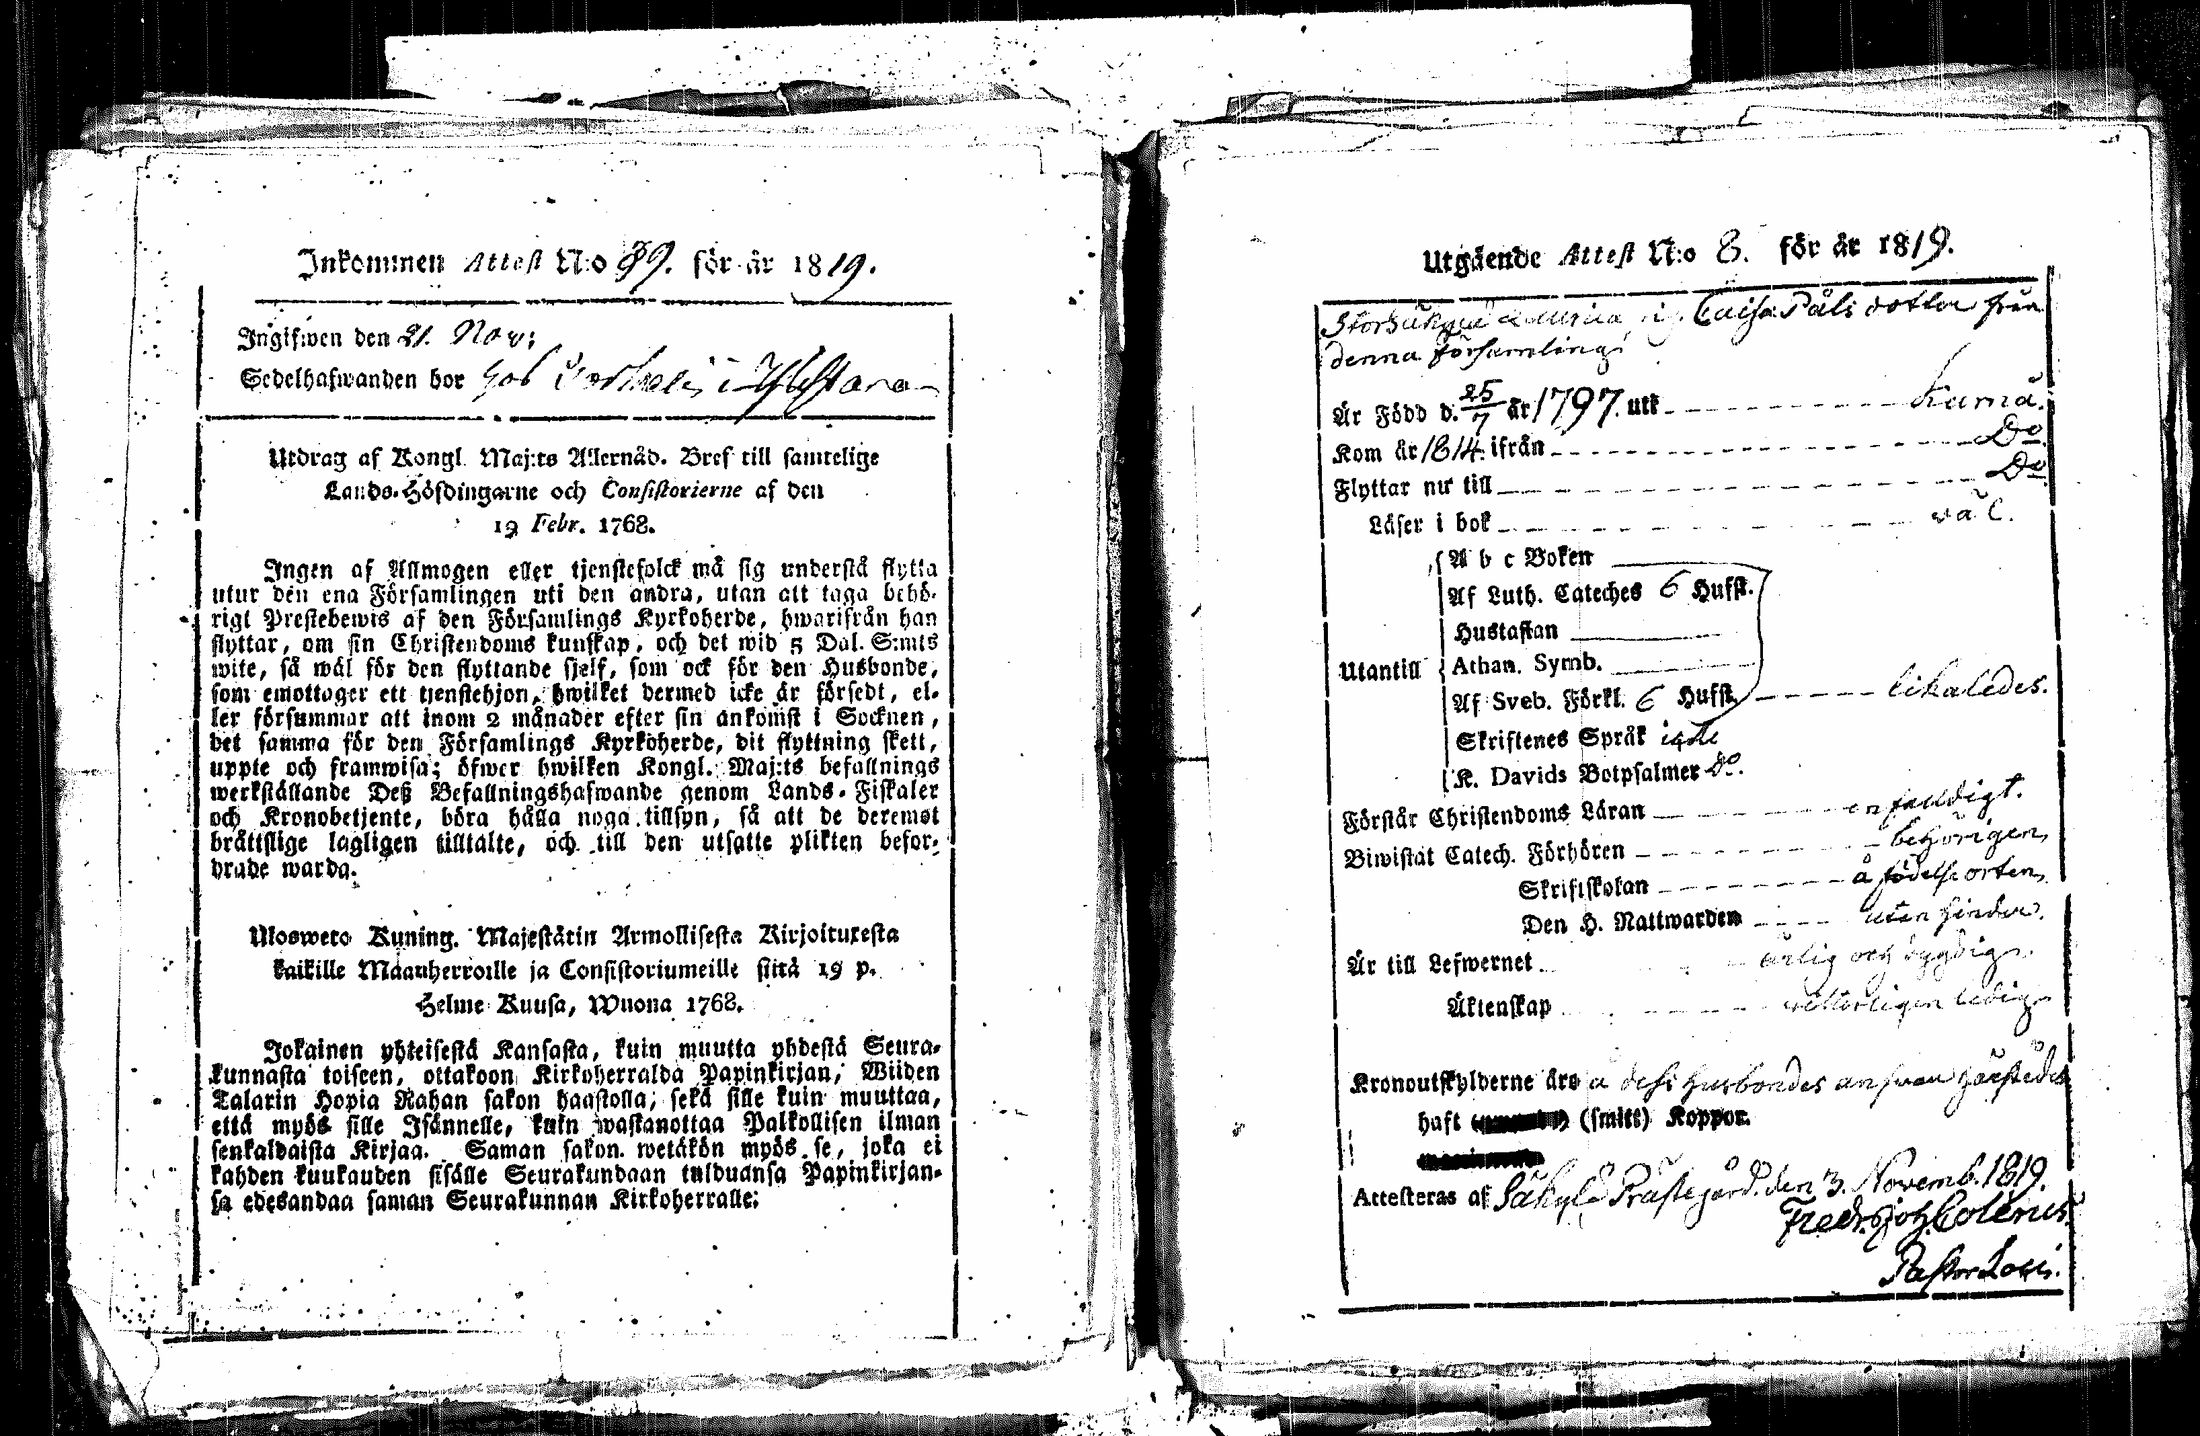 Inkommen Attest N:o 39. för år 1819.
Ingifwen den 21. Nov:
Sedelhafwanden bor hos i
Utdrag af Kongl. Maj:ts Allernåd. Bref till samtelige
Lands-Höfdingarne och Consistorierne af den
19 Febr. 1768.
Ingen af Allmogen eller tjenstefolck må sig understå flytta
utur den ena Församlingen uti den andra, utan att taga behö-
rigt Prestebewis af den Församlings Kyrkoherde, hwarifrån han
flyttar, om sin Christendoms kunskap, och det wid 5 Dal. S:mts
wite, så wäl för den flyttande sjelf, som ock för den Husbonde,
som emottager ett tjenstehjon, hwilket dermed icke är försedt, el-
ler försummar att inom 2 månader efter sin ankomst i Socknen,
det samma för den Församlings Kyrkoherde, dit flyttning skett,
uppte och framwisa; öfwer hwilken Kongl. Maj:ts befallnings
werkställande Deß Befallningshafwande genom Lands-Fiskaler
och Kronobetjente, böra hålla noga tillsyn, så att de deremot
bråttslige lagligen tilltalte, och till den utsatte plikten befor-
drade warda.
Ulosweto Kuning. Majestätin Armollisesta Kirjoituxesta
kaikille Maanherroille ja Consistoriumeille siitä 19 p.
Helme Kuusa, Wuona 1768.
Jokainen yhteisestä Kansasta, kuin muutta yhdestä Seura-
kunnasta toiseen, ottakoon Kirkoherralda Papinkirjan, Wiiden
Talarin Hopia Rahan sakon haastolla; sekä sille kuin muuttaa,
että myös sille Isännelle, kuin wastanottaa Palkollisen ilman
senkaldaista Kirjaa. Saman sakon wetäkön myös se, joka ei
kahden kuukauden sisälle Seurakundaan tulduansa Papinkirjan-
sa edesandaa saman Seurakunnan Kirkoherralle.
Utgående Attest N:o 8. för år 1819.
Caisa Påls dotter från
denna församling
Är Född d. 25/7 år 1797. uti Kumå.
Kom år 1814. ifrån Do.
Flyttar nu till Do.
Läser i bok väl.
A b c Boken
Af Luth. Cateches 6 Hufst.
Hustaflan
Utantill Athan. Symb.
Af Sveb. Förkl. 6 Hufst. likaledes.
Skriftenes Språk icke
K. Davids Botpsalmer Do.
Förstår Christendoms Läran enfaldigt.
Biwistat Catech. Förhören behörigen,
Skriftskolan å födelse orten,
Den H. Nattwarden utan hinder.
Är till Lefwernet ärlig och dygdig.
Äktenskap veterligen ledig.
Kronoutskylderne äro å dess husbondes ansvar härstädes
haft (smitt) Koppor.
Attesteras af Säkylä Prästegård. den 3. Novemb. 1819.
Fredr. Joh. Colerus
Pastor Loci.